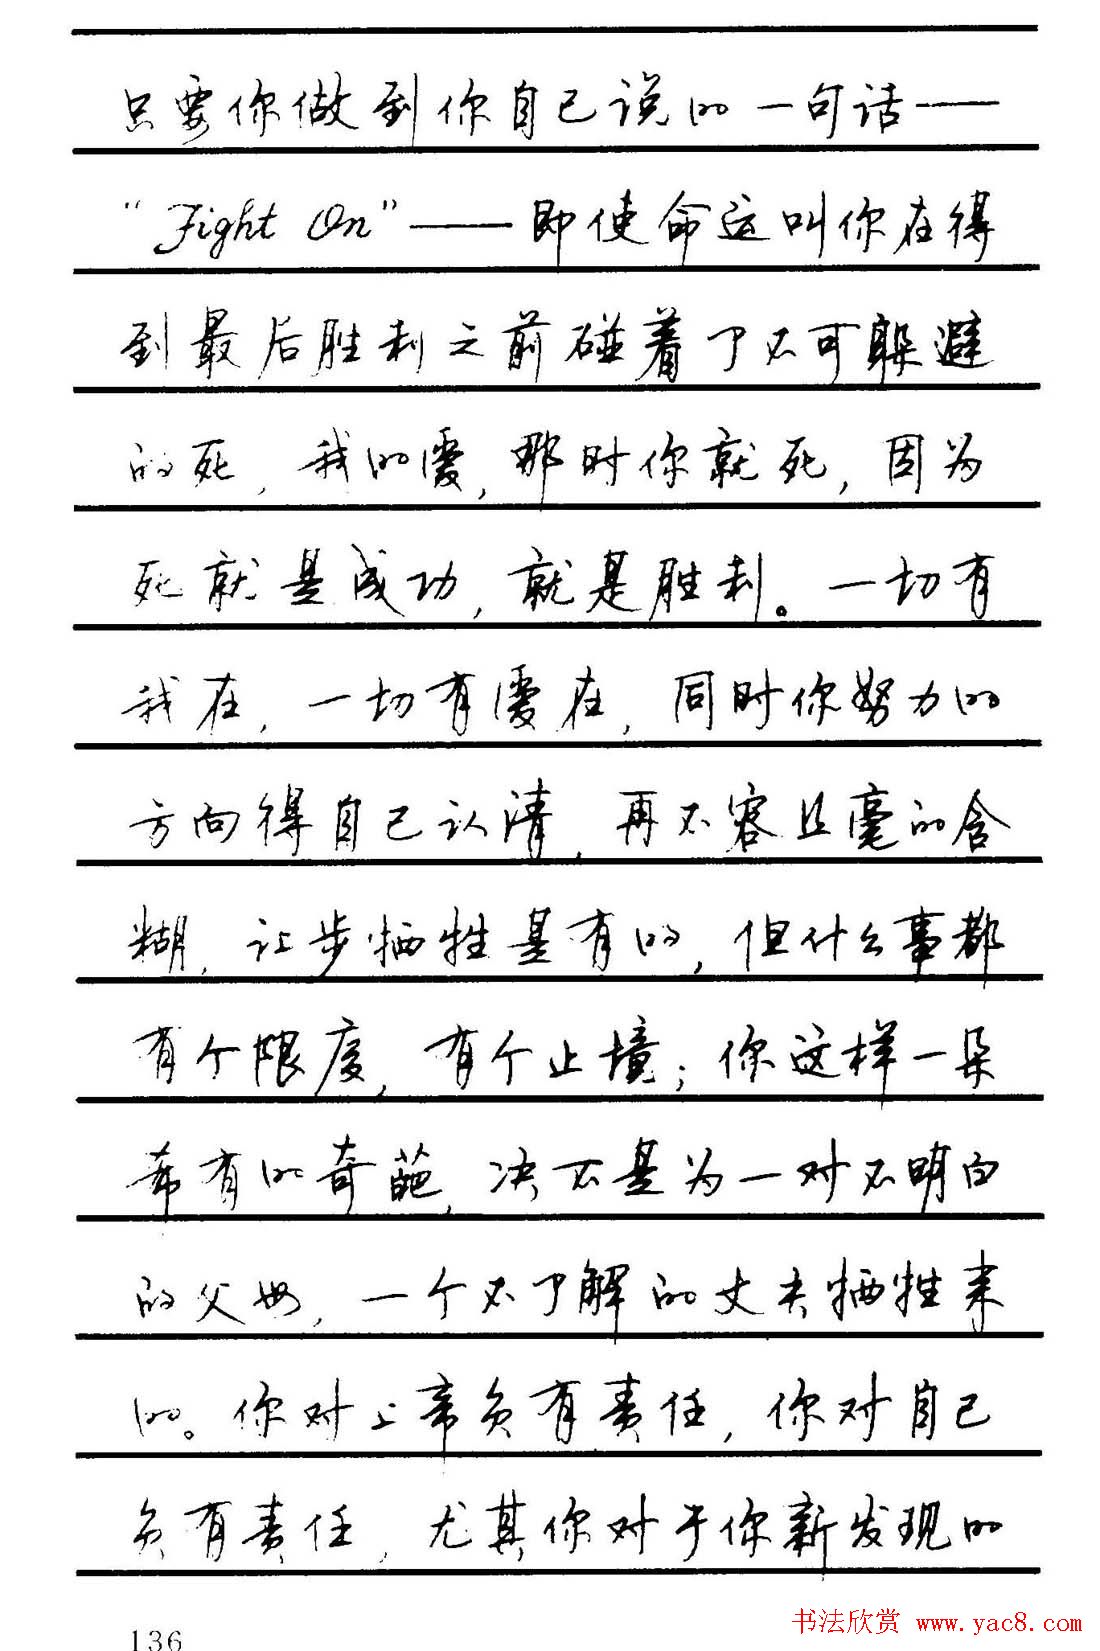 只要你做到你自己说的一句话——
“Fight On”——即使命运叫你在得
到最后胜利之前碰着了不可躲避
的死，我的爱，那时你就死，因为
死就是成功，就是胜利。一切有
我在，一切有爱在，同时你努力的
方向得自己认清，再不容丝毫的含
糊，让步牺牲是有的，但什么事都
有个限度，有个止境；你这样一朵
希有的奇葩，决不是为一对不明白
的父母，一个不了解的丈夫牺牲来
的。你对上帝负有责任，你对自己
负有责任，尤其你对于你新发现的
136
书法欣赏 www.yac8.com